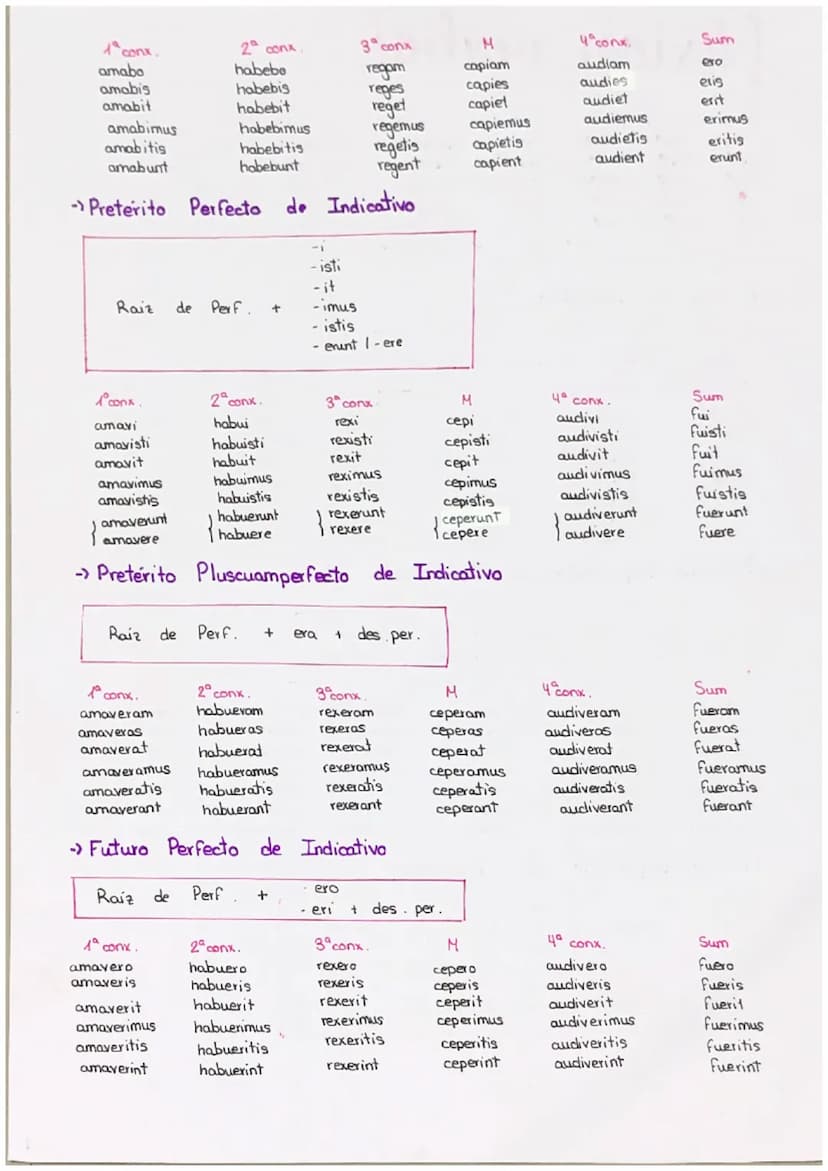 1ª conx. 2ª conx. 3ª conx M 4ª conx. Sum
amabo habebo regam capiam audiam ero
amabis habebis reges capies audies eris
amabit habebit reget capiet audiet erit
amabimus habebimus regemus capiemus audiemus erimus
amabitis habebitis regetis capietis audietis eritis
amabunt habebunt regent capient audient erunt
-> Pretérito Perfecto de Indicativo
-i
-isti
-it
Raiz de Perf. + -imus
-istis
-erunt / -ere
1ª conx. 2ª conx. 3ª conx M 4ª conx. Sum
amavi habui rexi cepi audivi fui
amavisti habuisti rexisti cepisti audivisti fuisti
amavit habuit rexit cepit audivit fuit
amavimus habuimus reximus cepimus audivimus fuimus
amavistis habuistis rexistis cepistis audivistis fuistis
amaverunt habuerunt rexerunt ceperunt audiverunt fuerunt
amavere habuere rexere cepere audivere fuere
-> Pretérito Pluscuamperfecto de Indicativo
Raiz de Perf. + era + des.per.
1ª conx. 2ª conx. 3ª conx. M 4ª conx. Sum
amaveram habueram rexeram ceperam audiveram fueram
amaveras habueras rexeras ceperas audiveras fueras
amaverat habuerat rexerat ceperat audiverat fuerat
amaveramus habueramus rexeramus ceperamus audiveramus fueramus
amaveratis habueratis rexeratis ceperatis audiveratis fueratis
amaverant habuerant rexerant ceperant audiverant fuerant
-> Futuro Perfecto de Indicativo
- ero
Raíz de Perf. +
- eri + des. per.
1ª conx. 2ª conx. 3ª conx. M 4ª conx. Sum
amavero habuero rexero cepero audivero fuero
amaveris habueris rexeris ceperis audiveris fueris
amaverit habuerit rexerit ceperit audiverit fuerit
amaverimus habuerimus rexerimus ceperimus audiverimus fuerimus
amaveritis habueritis rexeritis ceperitis audiveritis fueritis
amaverint habuerint rexerint ceperint audiverint fuerint